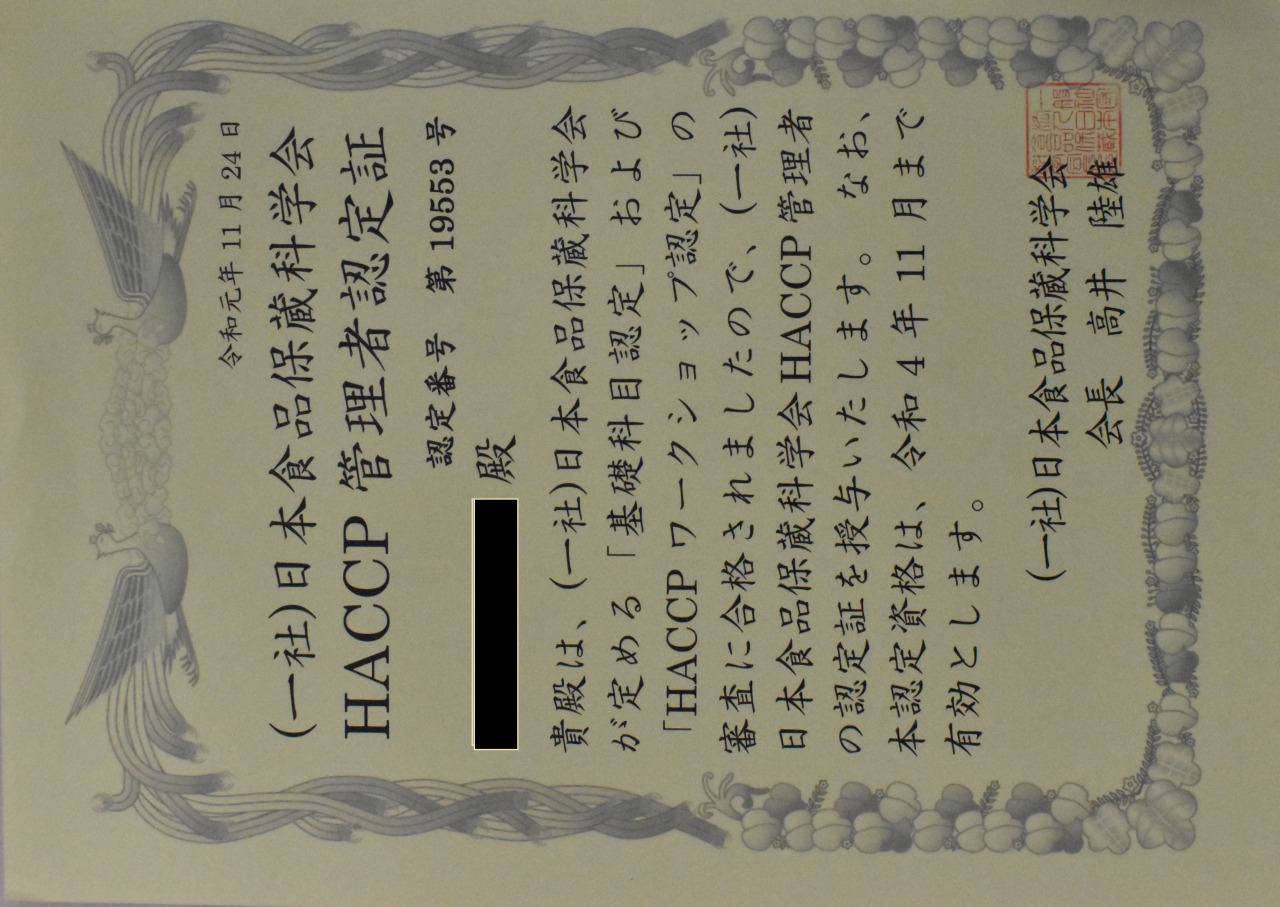 令和元年 11 月 24 日
(一社)日本食品保蔵科学会
HACCP 管理者認定証
認定番号 第 19553 号
殿
貴殿は、(一社)日本食品保蔵科学会
が定める「基礎科目認定」および
「HACCP ワークショップ認定」の
審査に合格されましたので、(一社)
日本食品保蔵科学会 HACCP 管理者
の認定証を授与いたします。なお、
本認定資格は、令和 4 年 11 月まで
有効とします。
(一社)日本食品保蔵科学会
会長 高井 陸雄